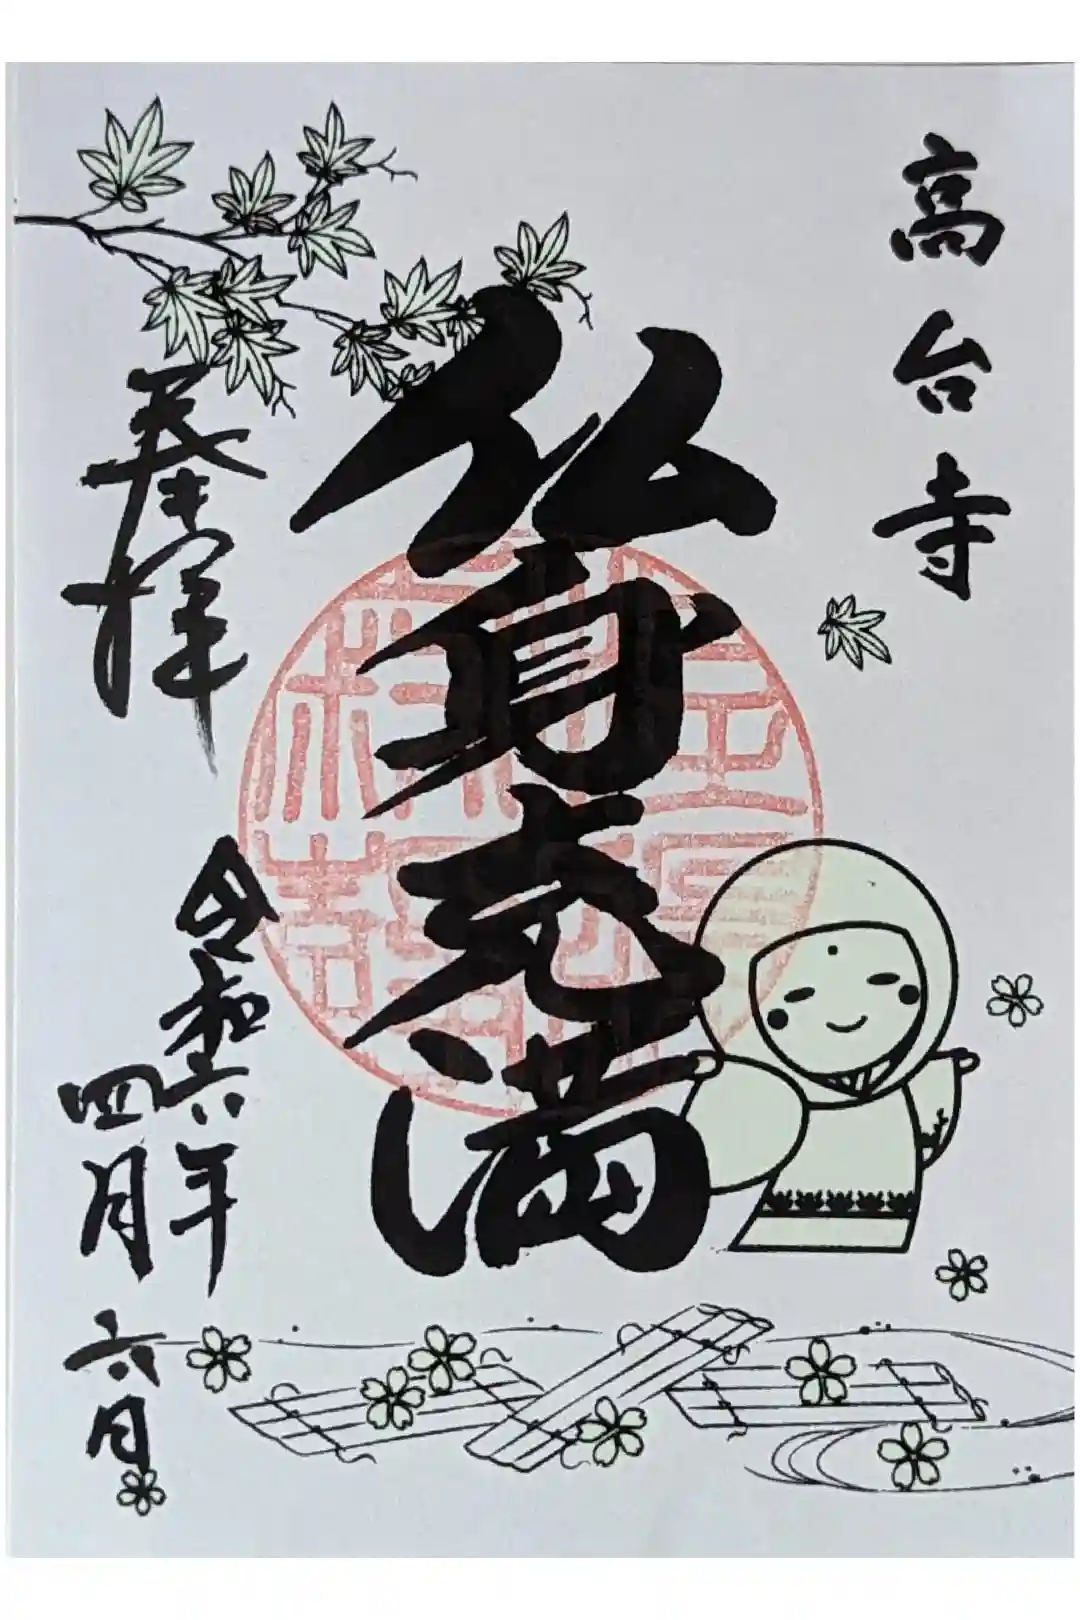 高台寺
仏身充満
奉拝
令和六年
四月六日